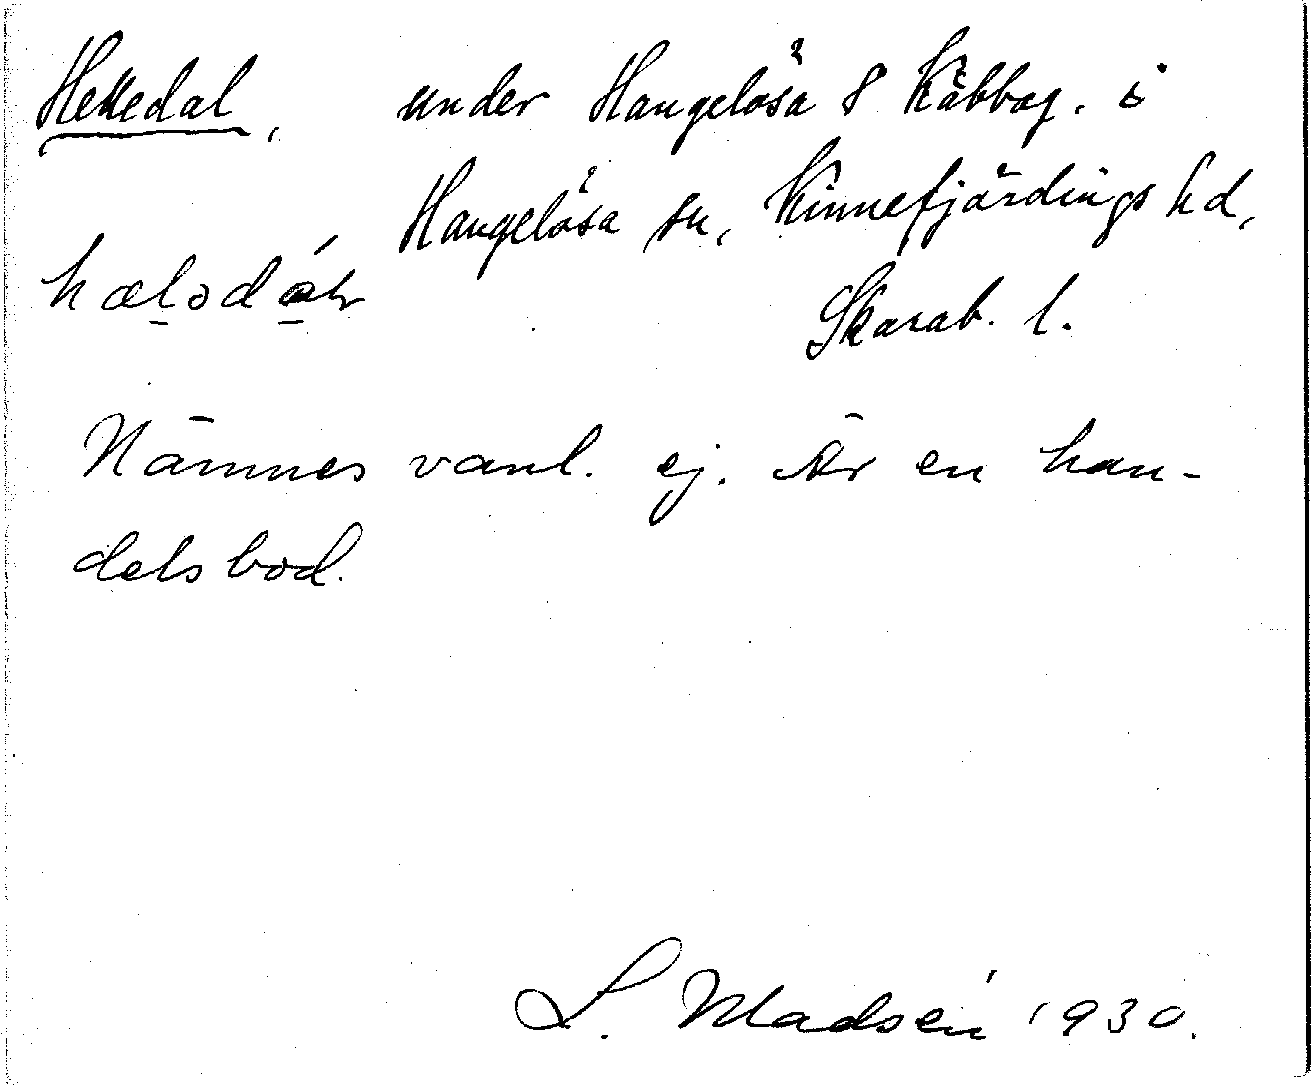 Helledal, under Hangelösa 8 Kåbbag. i
Hangelösa sn, Kinnefjärdings hd,
Skarab. l.
Nämnes vanl. ej. Är en han-
delsbod.
L. Madsén 1930.